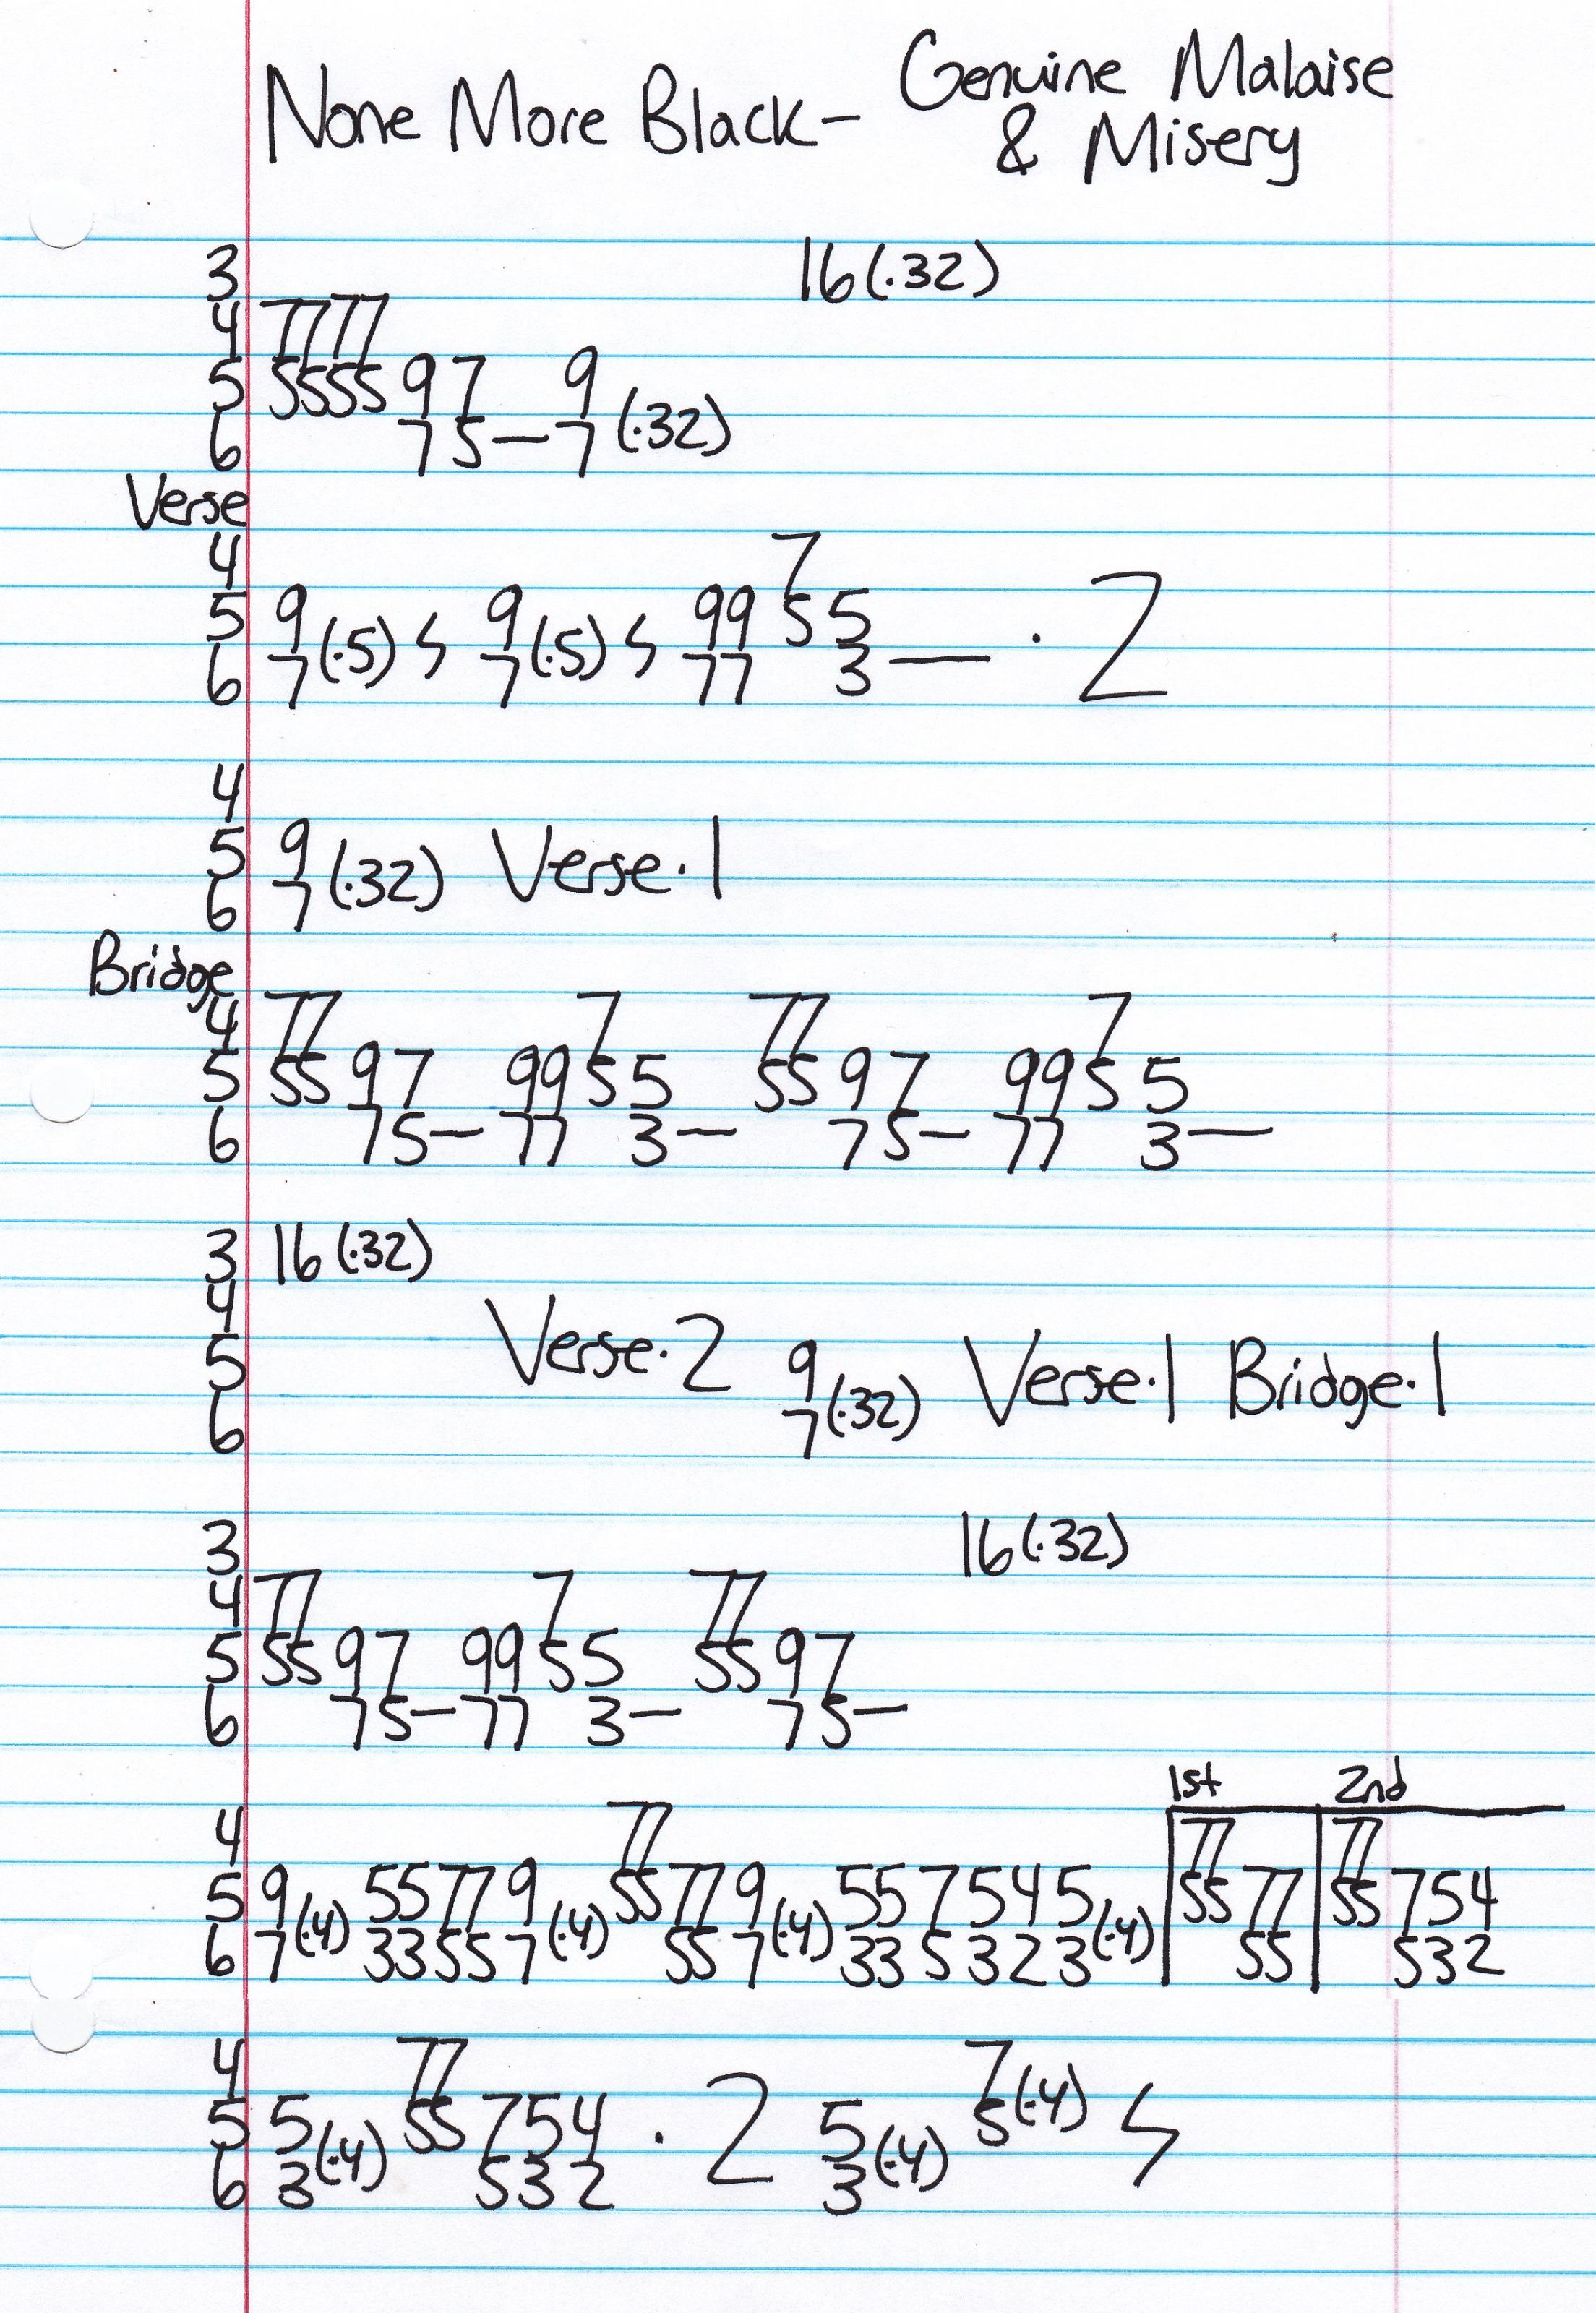 None More Black- Genuine Malaise
& Misery
3 16(·32)
4 7777
5 5555 97 9
6 75—7 (·32)
Verse
4 7
5 9 9 99 5 5
6 7(·5) 7(·5) 77 3— · 2
4
5 9 Verse·1
6 7(·32)
Bridge
4 77 7 77 7
5 55 97 99 5 5 55 97 99 5 5
6 75— 77 3— 75— 77 3—
3 16(·32)
4
5 Verse·2 9 Verse·1 Bridge·1
6 7(·32)
3 16(·32)
4 77 7 77
5 55 97 99 5 5 55 97
6 75— 77 3— 75—
1st 2nd
4 77 77 77
5 9 55 77 9 55 77 9 55 7 5 4 5 55 77 55 754
6 7(·4) 33 55 7(·4) 55 7(·4) 33 5 3 2 3(·4) 55 532
4 77 7(·4)
5 5 55 754 · 2 5 5
6 3(·4) 532 3(·4)